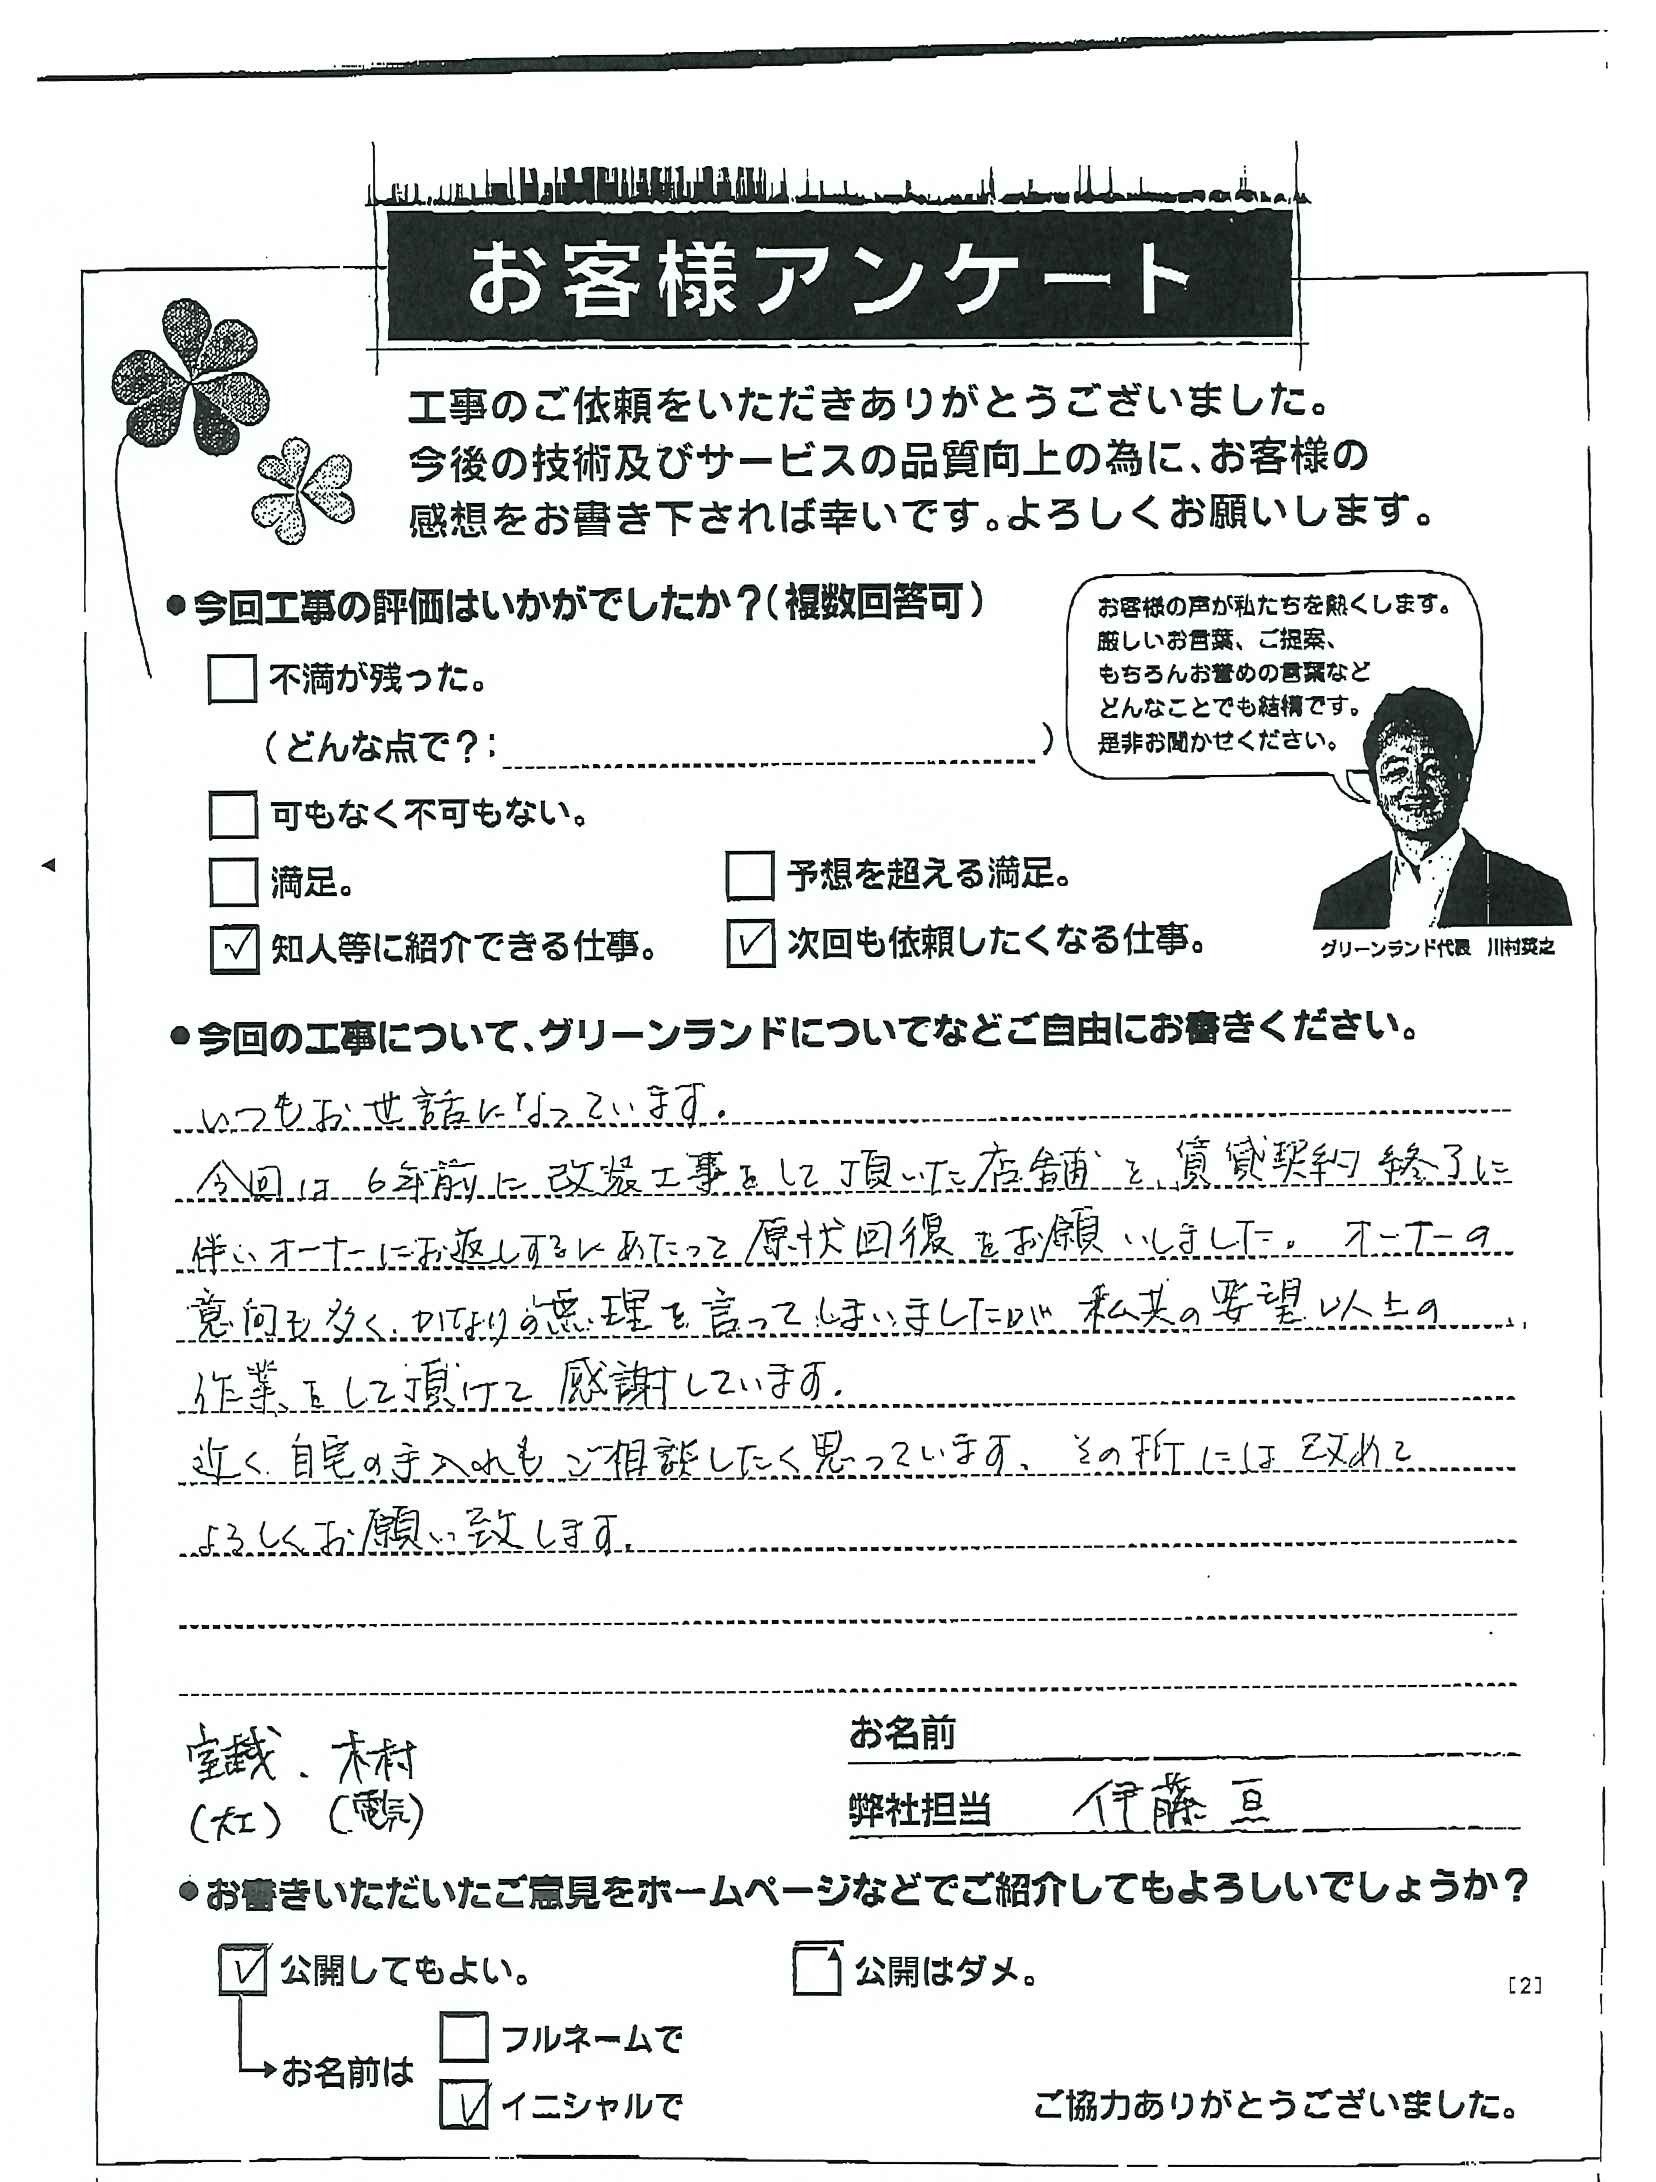 お客様アンケート
工事のご依頼をいただきありがとうございました。
今後の技術及びサービスの品質向上の為に、お客様の
感想をお書き下されば幸いです。よろしくお願いします。
●今回工事の評価はいかがでしたか？(複数回答可)
不満が残った。
(どんな点で？: )
可もなく不可もない。
満足。
予想を超える満足。
✓ 知人等に紹介できる仕事。
✓ 次回も依頼したくなる仕事。
お客様の声が私たちを熱くします。
厳しいお言葉、ご提案、
もちろんお誉めの言葉など
どんなことでも結構です。
是非お聞かせください。
グリーンランド代表 川村英之
●今回の工事について、グリーンランドについてなどご自由にお書きください。
いつもお世話になっています。
今回は6年前に改装工事をして頂いた店舗を、賃貸契約終了に
伴いオーナーにお返しするにあたって原状回復をお願いしました。オーナーの
意向も多く、かなりの無理を言ってしまいましたが私共の要望以上の
作業をして頂けて感謝しています。
近く自宅の手入れもご相談したく思っています、その折には改めて
よろしくお願い致します。
室越、木村
(大工) (電気)
お名前
弊社担当 伊藤 亘
●お書きいただいたご意見をホームページなどでご紹介してもよろしいでしょうか？
✓ 公開してもよい。
公開はダメ。
[2]
→お名前は
フルネームで
✓ イニシャルで
ご協力ありがとうございました。